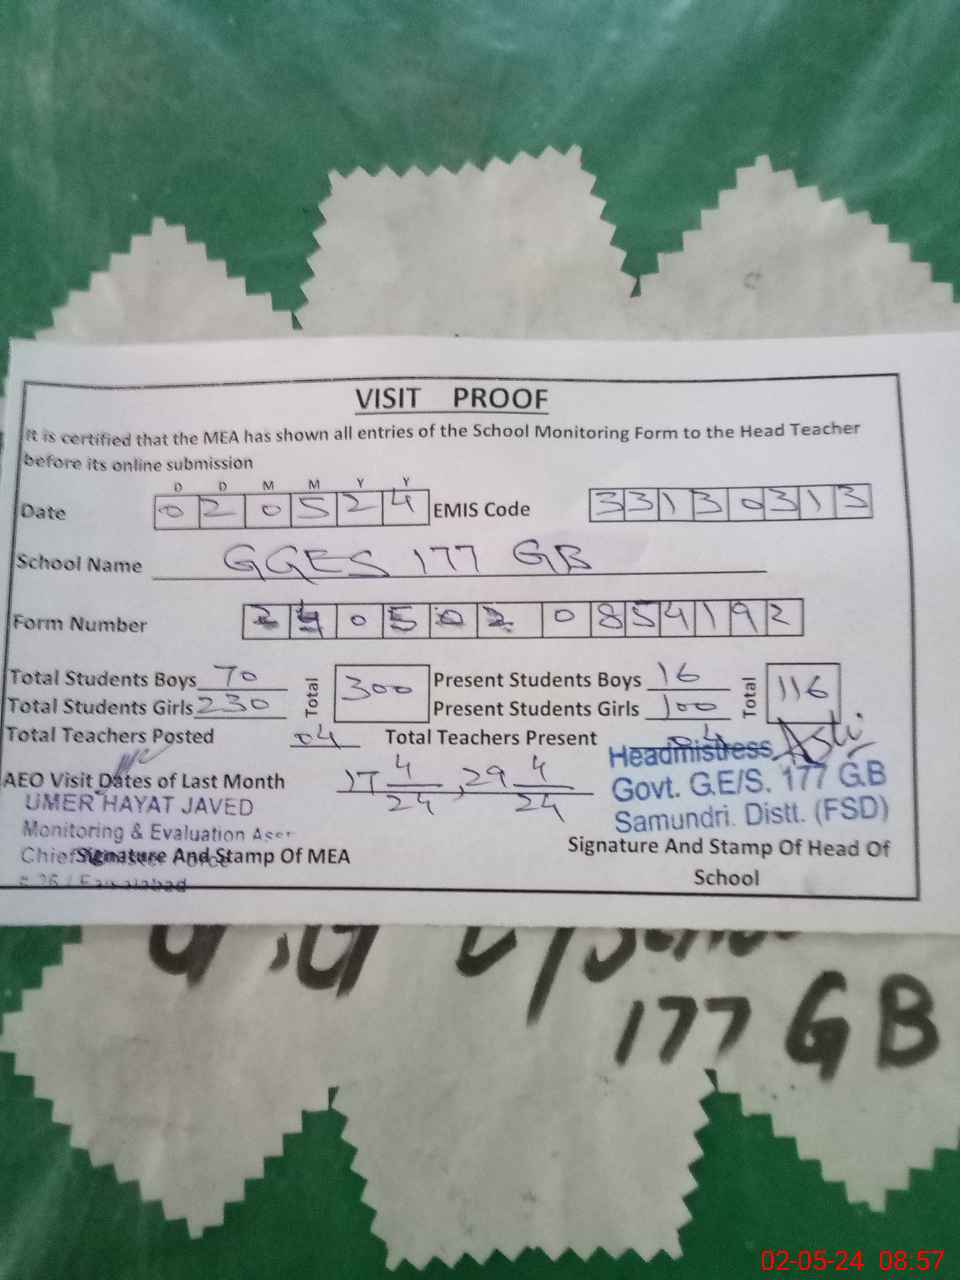 VISIT PROOF
It is certified that the MEA has shown all entries of the School Monitoring Form to the Head Teacher
before its online submission
D D M M Y Y
Date 0 2 0 5 2 4 EMIS Code 3 3 1 3 0 3 1 3
School Name GGES 177 GB
Form Number 2 4 0 5 0 2 0 8 5 4 1 9 2
Total Students Boys 70 Total 300 Present Students Boys 16 Total 116
Total Students Girls 230 Present Students Girls 100
Total Teachers Posted 04 Total Teachers Present 04
AEO Visit Dates of Last Month 17 4/24, 29 4/24
Headmistress
Govt. G.E/S. 177 G.B
Samundri. Distt. (FSD)
UMER HAYAT JAVED
Monitoring & Evaluation
Chief
Signature And Stamp Of MEA
Signature And Stamp Of Head Of
School
Faisalabad
177 GB
02-05-24 08:57